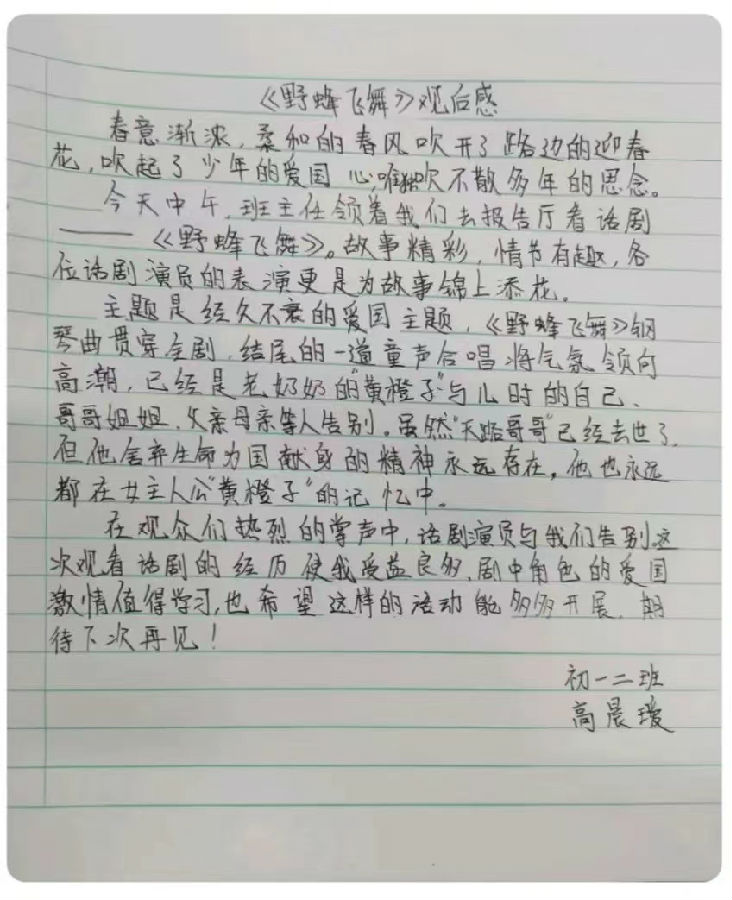 《野蜂飞舞》观后感
春意渐浓，柔和的春风吹开了路边的迎春
花，吹起了少年的爱国心，唯独吹不散多年的思念。
今天中午，班主任领着我们去报告厅看话剧
——《野蜂飞舞》。故事精彩，情节有趣，各
位话剧演员的表演更是为故事锦上添花。
主题是经久不衰的爱国主题，《野蜂飞舞》钢
琴曲贯穿全剧，结尾的一道童声合唱将气氛领向
高潮，已经是老奶奶的“黄橙子”与儿时的自己、
哥哥姐姐、父亲母亲等人告别。虽然“天路哥哥”已经去世了，
但他舍弃生命为国献身的精神永远存在，他也永远
都在女主人公“黄橙子”的记忆中。
在观众们热烈的掌声中，话剧演员与我们告别，这
次观看话剧的经历使我受益良多，剧中角色的爱国
激情值得学习，也希望这样的活动能多多开展，期
待下次再见！
初一二班
高晨瑷